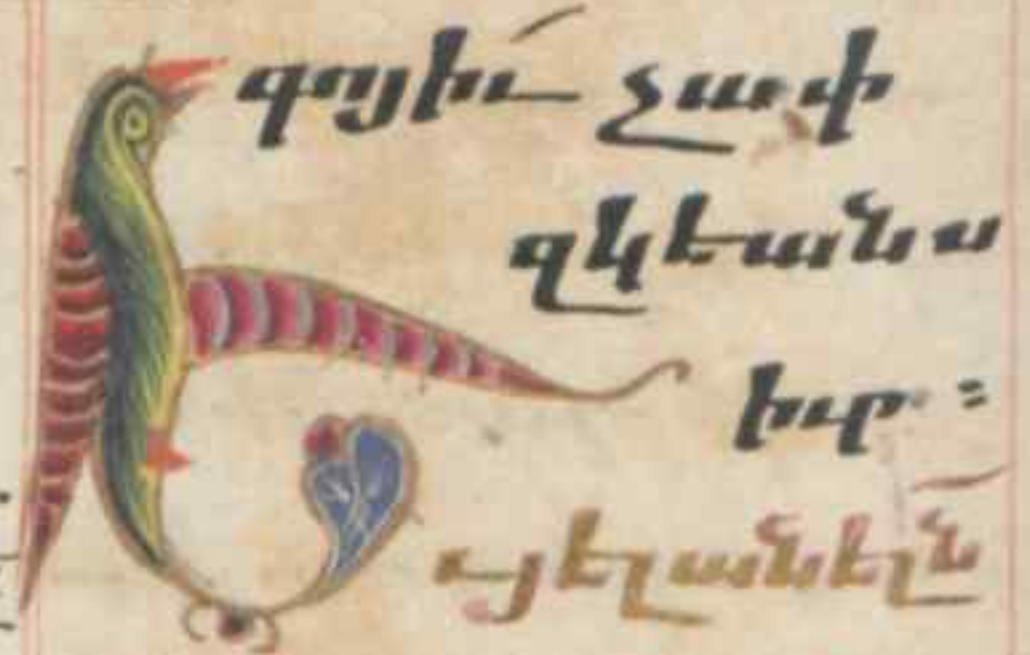 գոյիւ չափ
զկեանս
իւր :
Եւ յելանելն